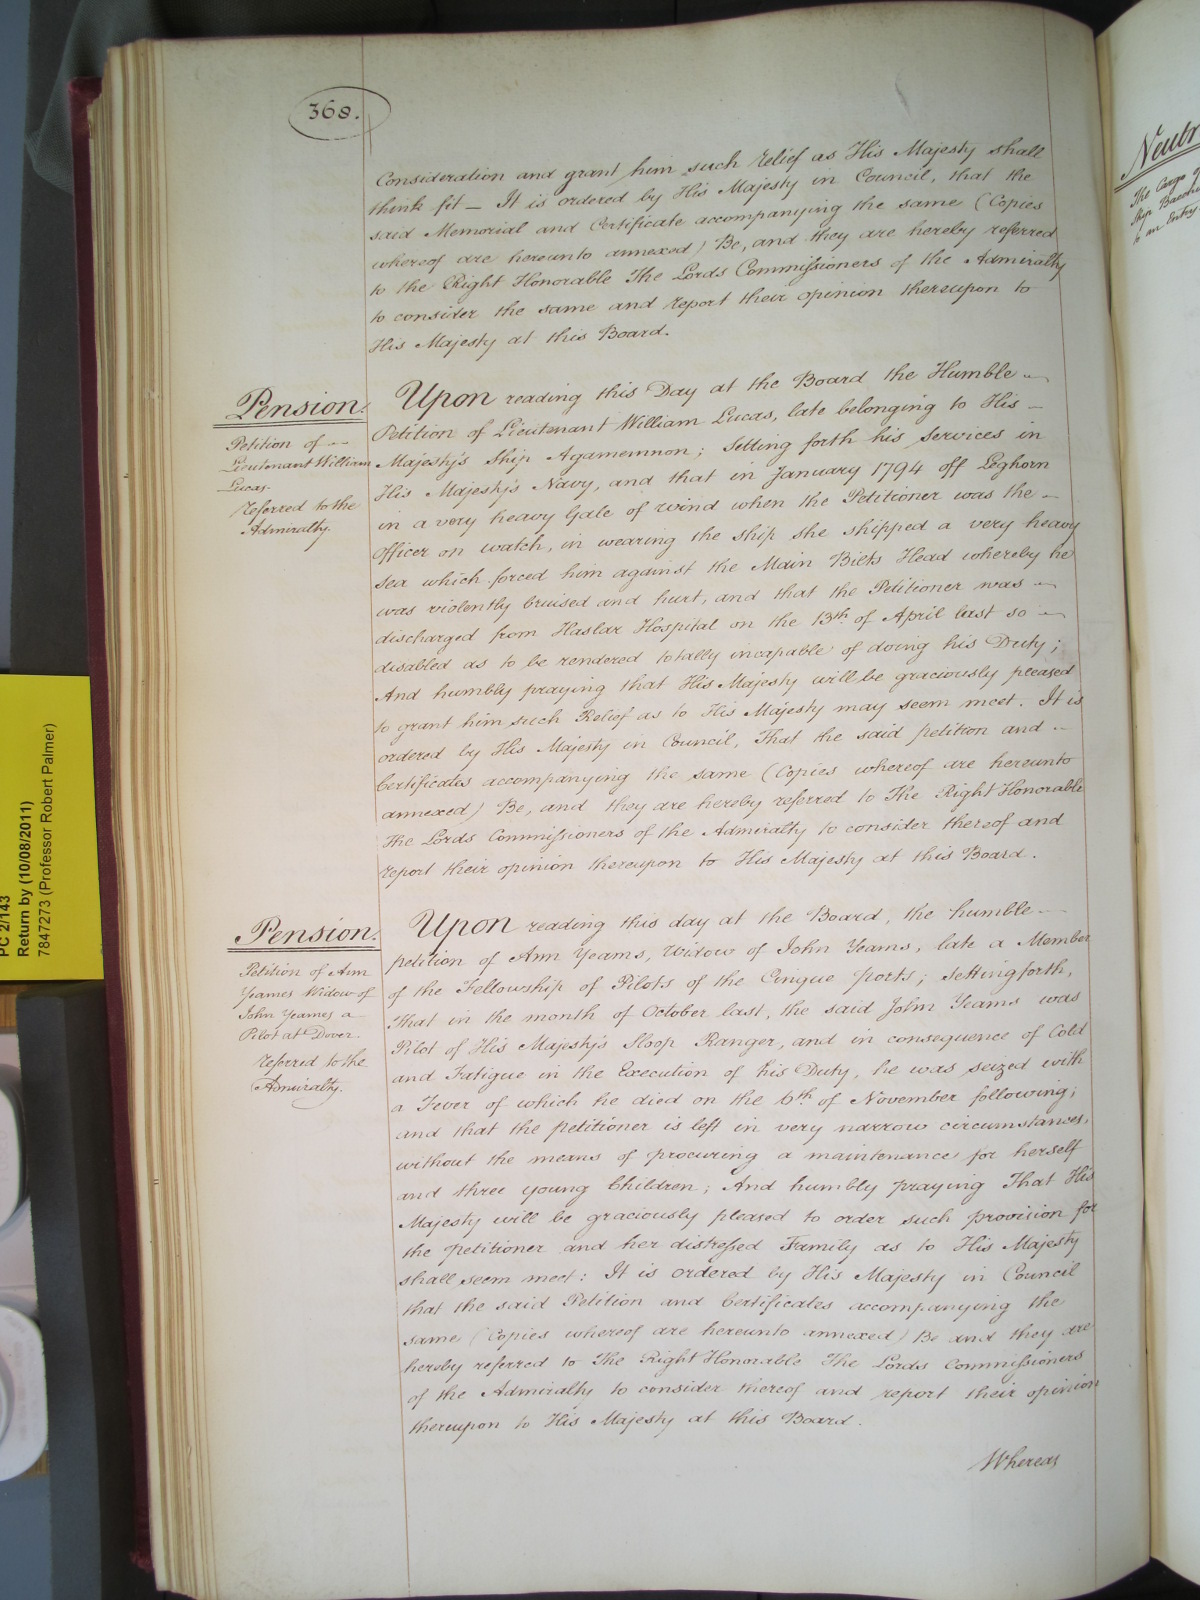 368.
Consideration and grant him such relief as His Majesty shall
think fit — It is ordered by His Majesty in Council, that the
said Memorial and Certificate accompanying the same (Copies
whereof are hereunto annexed) Be, and they are hereby referred
to the Right Honorable The Lords Commissioners of the Admiralty
to consider the same and report their opinion thereupon to
His Majesty at this Board.
Pension.
Petition of —
Lieutenant William
Lucas.
referred to the
Admiralty.
Upon reading this Day at the Board the Humble —
Petition of Lieutenant William Lucas, late belonging to His —
Majesty's Ship Agamemnon; Setting forth his Services in
His Majesty's Navy, and that in January 1794 off Leghorn
in a very heavy Gale of wind when the Petitioner was the —
Officer on watch, in wearing the ship she shipped a very heavy
sea which forced him against the Main Bitts Head whereby he
was violently bruised and hurt, and that the Petitioner was —
discharged from Haslar Hospital on the 13th of April last so —
disabled as to be rendered totally incapable of doing his Duty;
And humbly praying that His Majesty will be graciously pleased
to grant him such Relief as to His Majesty may seem meet. It is
ordered by His Majesty in Council, That the said petition and —
Certificates accompanying the same (Copies whereof are hereunto
annexed) Be, and they are hereby referred to The Right Honorable
The Lords Commissioners of the Admiralty to consider thereof and
report their opinion thereupon to His Majesty at this Board.
Pension.
Petition of Ann
Yeames Widow of
John Yeames a
Pilot at Dover.
referred to the
Admiralty.
Upon reading this day at the Board, the humble —
petition of Ann Yeams, Widow of John Yeams, late a Member
of the Fellowship of Pilots of the Cinque ports; setting forth,
that in the month of October last, the said John Yeams was
Pilot of His Majesty's Sloop Ranger, and in consequence of Cold
and Fatigue in the Execution of his Duty, he was seized with
a Fever of which he died on the 6th of November following;
and that the petitioner is left in very narrow circumstances,
without the means of procuring a maintenance for herself
and three young Children; And humbly praying That His
Majesty will be graciously pleased to order such provision for
the petitioner and her distressed Family as to His Majesty
shall seem meet: It is ordered by His Majesty in Council
that the said Petition and Certificates accompanying the
same (Copies whereof are hereunto annexed) Be and they are
hereby referred to The Right Honorable The Lords Commissioners
of the Admiralty to consider thereof and report their opinion
thereupon to His Majesty at this Board.
Whereas
PC 2/143
Return by (10/08/2011)
7847273 (Professor Robert Palmer)
Neutr
The Cargo
Ship
to an Entry